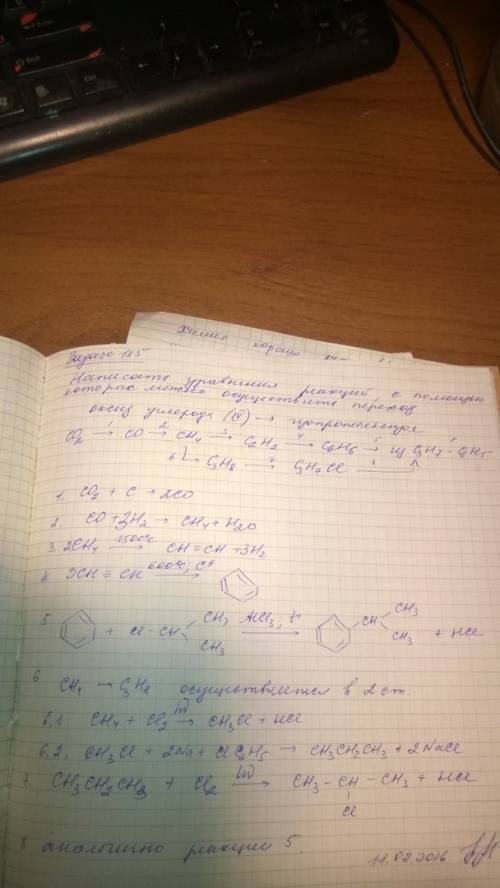 Химия хорошо
Задача 185
Написать уравнения реакций, с помощью
которых можно осуществить переход
оксид углерода (IV) →
CO2 1→ CO 2→ CH4 3→ C2H2 4→ C6H6 5→ C3H7-C6H5
6 C3H8 7→ C3H7Cl 8
1. CO2 + C → 2CO
2. CO + 3H2 → CH4 + H2O
3. 2CH4 1500°C→ CH≡CH + 3H2
4. 3CH≡CH 600°C; C*→
5 + Cl-CH CH3 CH3 AlCl3; t→ CH CH3 CH3 + HCl
6 CH4 → C3H8 осуществляется в 2 ст.
6.1 CH4 + Cl2 hν→ CH3Cl + HCl
6.2. CH3Cl + 2Na + ClC2H5 → CH3CH2CH3 + 2NaCl
7. CH3CH2CH3 + Cl2 hν→ CH3-CH-CH3 + HCl
Cl
8 аналогично реакции 5.
11.02.2016